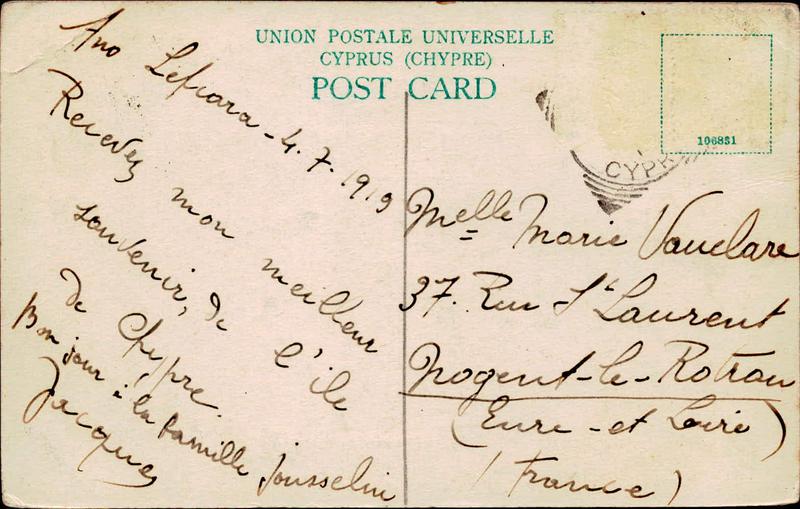 UNION POSTALE UNIVERSELLE
CYPRUS (CHYPRE)
POST CARD
106831
CYPR
Ano Lefcara - 4.7.1919
Recevez mon meilleur
souvenir, de l'île
de Chypre.
Bonjour à la famille Jousselin
Jacques
Melle Marie Vauclare
37. Rue St Laurent
Nogent-le-Rotrou
(Eure-et Loire)
(France)